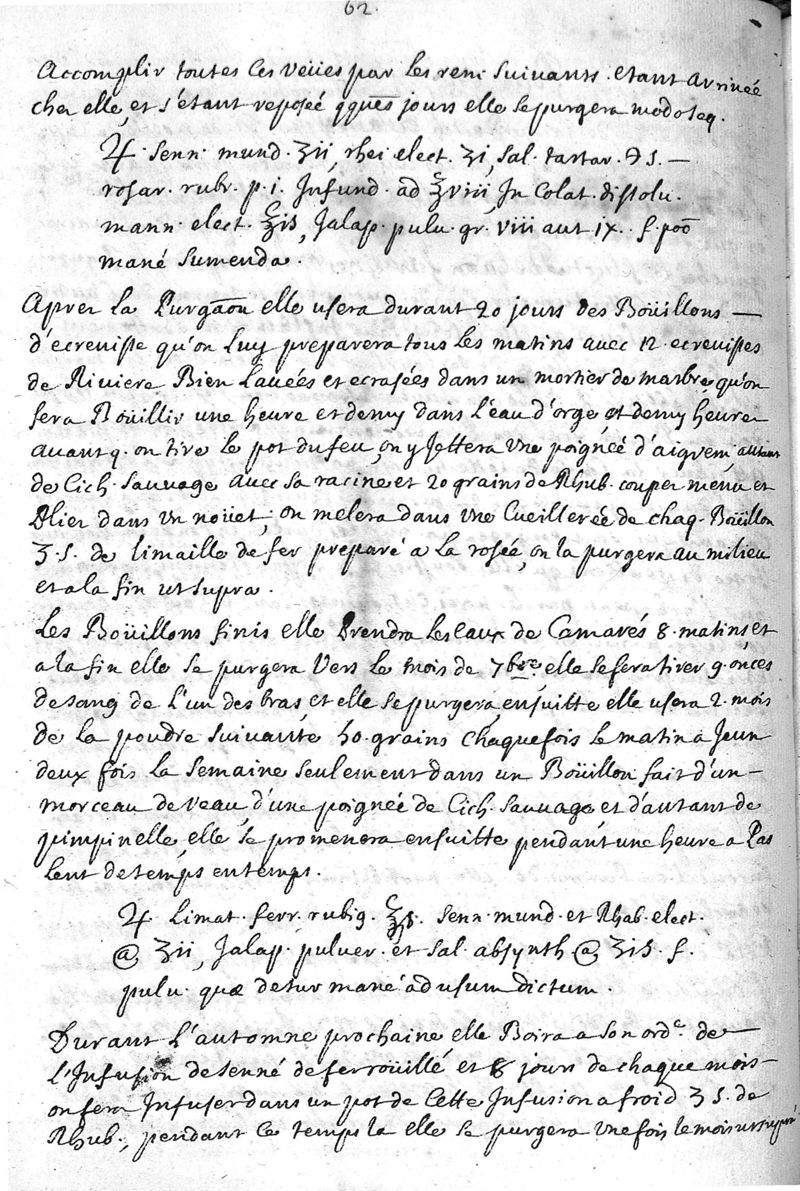 62.
Accomplir toutes ces veües par les rem. suivants. etant arrivée
chez elle, et s'étant reposée qques jours elle se purgera modo seq.
♃. senn. mund. ʒii, rhei elect. ʒi, sal. tartar. ℈ s. —
rosar. rubr. p. i. Infund. ad ℥viii, In Colat. dissolu.
mann. elect. ℥is, Jalap. pulu. gr. viii aut ix. f. poõ
mané sumenda.
Apres la Purgaõn elle usera durant 20 jours des Boüillons —
d'ecrevisse qu'on luy preparera tous les matins avec 12. ecrevisses
de Riviere Bien lauées et ecrasées dans un mortier de marbre qu'on
fera Boüillir une heure et demy dans l'eau d'orge, et demy heure
auant q. on tire le pot du feu, on y Jettera une poignée d'aigrem. autant
de Cich. sauvage avec sa racine et 20 grains de Rhub. couper menu et
Dlier dans un noüet, on melera dans une Cueillerée de chaq. Boüillon
ʒ. s. de limaille de fer preparé a la rosée, on la purgera au milieu
et a la fin ut supra.
Les Boüillons finis elle Prendra les eaux de Camarés 8. matins et
a la fin elle se purgera Vers le mois de 7bre. elle se fera tirer 9. onces
de sang de l'un des bras et elle se purgera, ensuitte elle usera 2. mois
de la poudre suivante 40. grains chaque fois le matin a Jeun
deux fois la semaine seulement dans un Boüillon fait d'un —
morceau de veau, d'une poignée de Cich. sauvage et d'autant de
pimpinelle, elle se promenera ensuitte pendant une heure a Pas
lent de temps en temps.
♃. Limat. ferr. rubig. ℥s. senn. mund. et Rhab. elect.
@ ʒii, Jalap. puluer. et sal. absynth @ ʒis. f.
pulu. quæ detur mané ad usum dictum.
Durant l'automne prochaine elle Boira a son ord.e de —
l'Infusion de senné de fer roüillé, et 8 jours de chaque mois —
on fera Infuser dans un pot de Cette Infusion a froid ʒ s. de
Rhub., pendant ce temps la elle se purgera une fois le mois